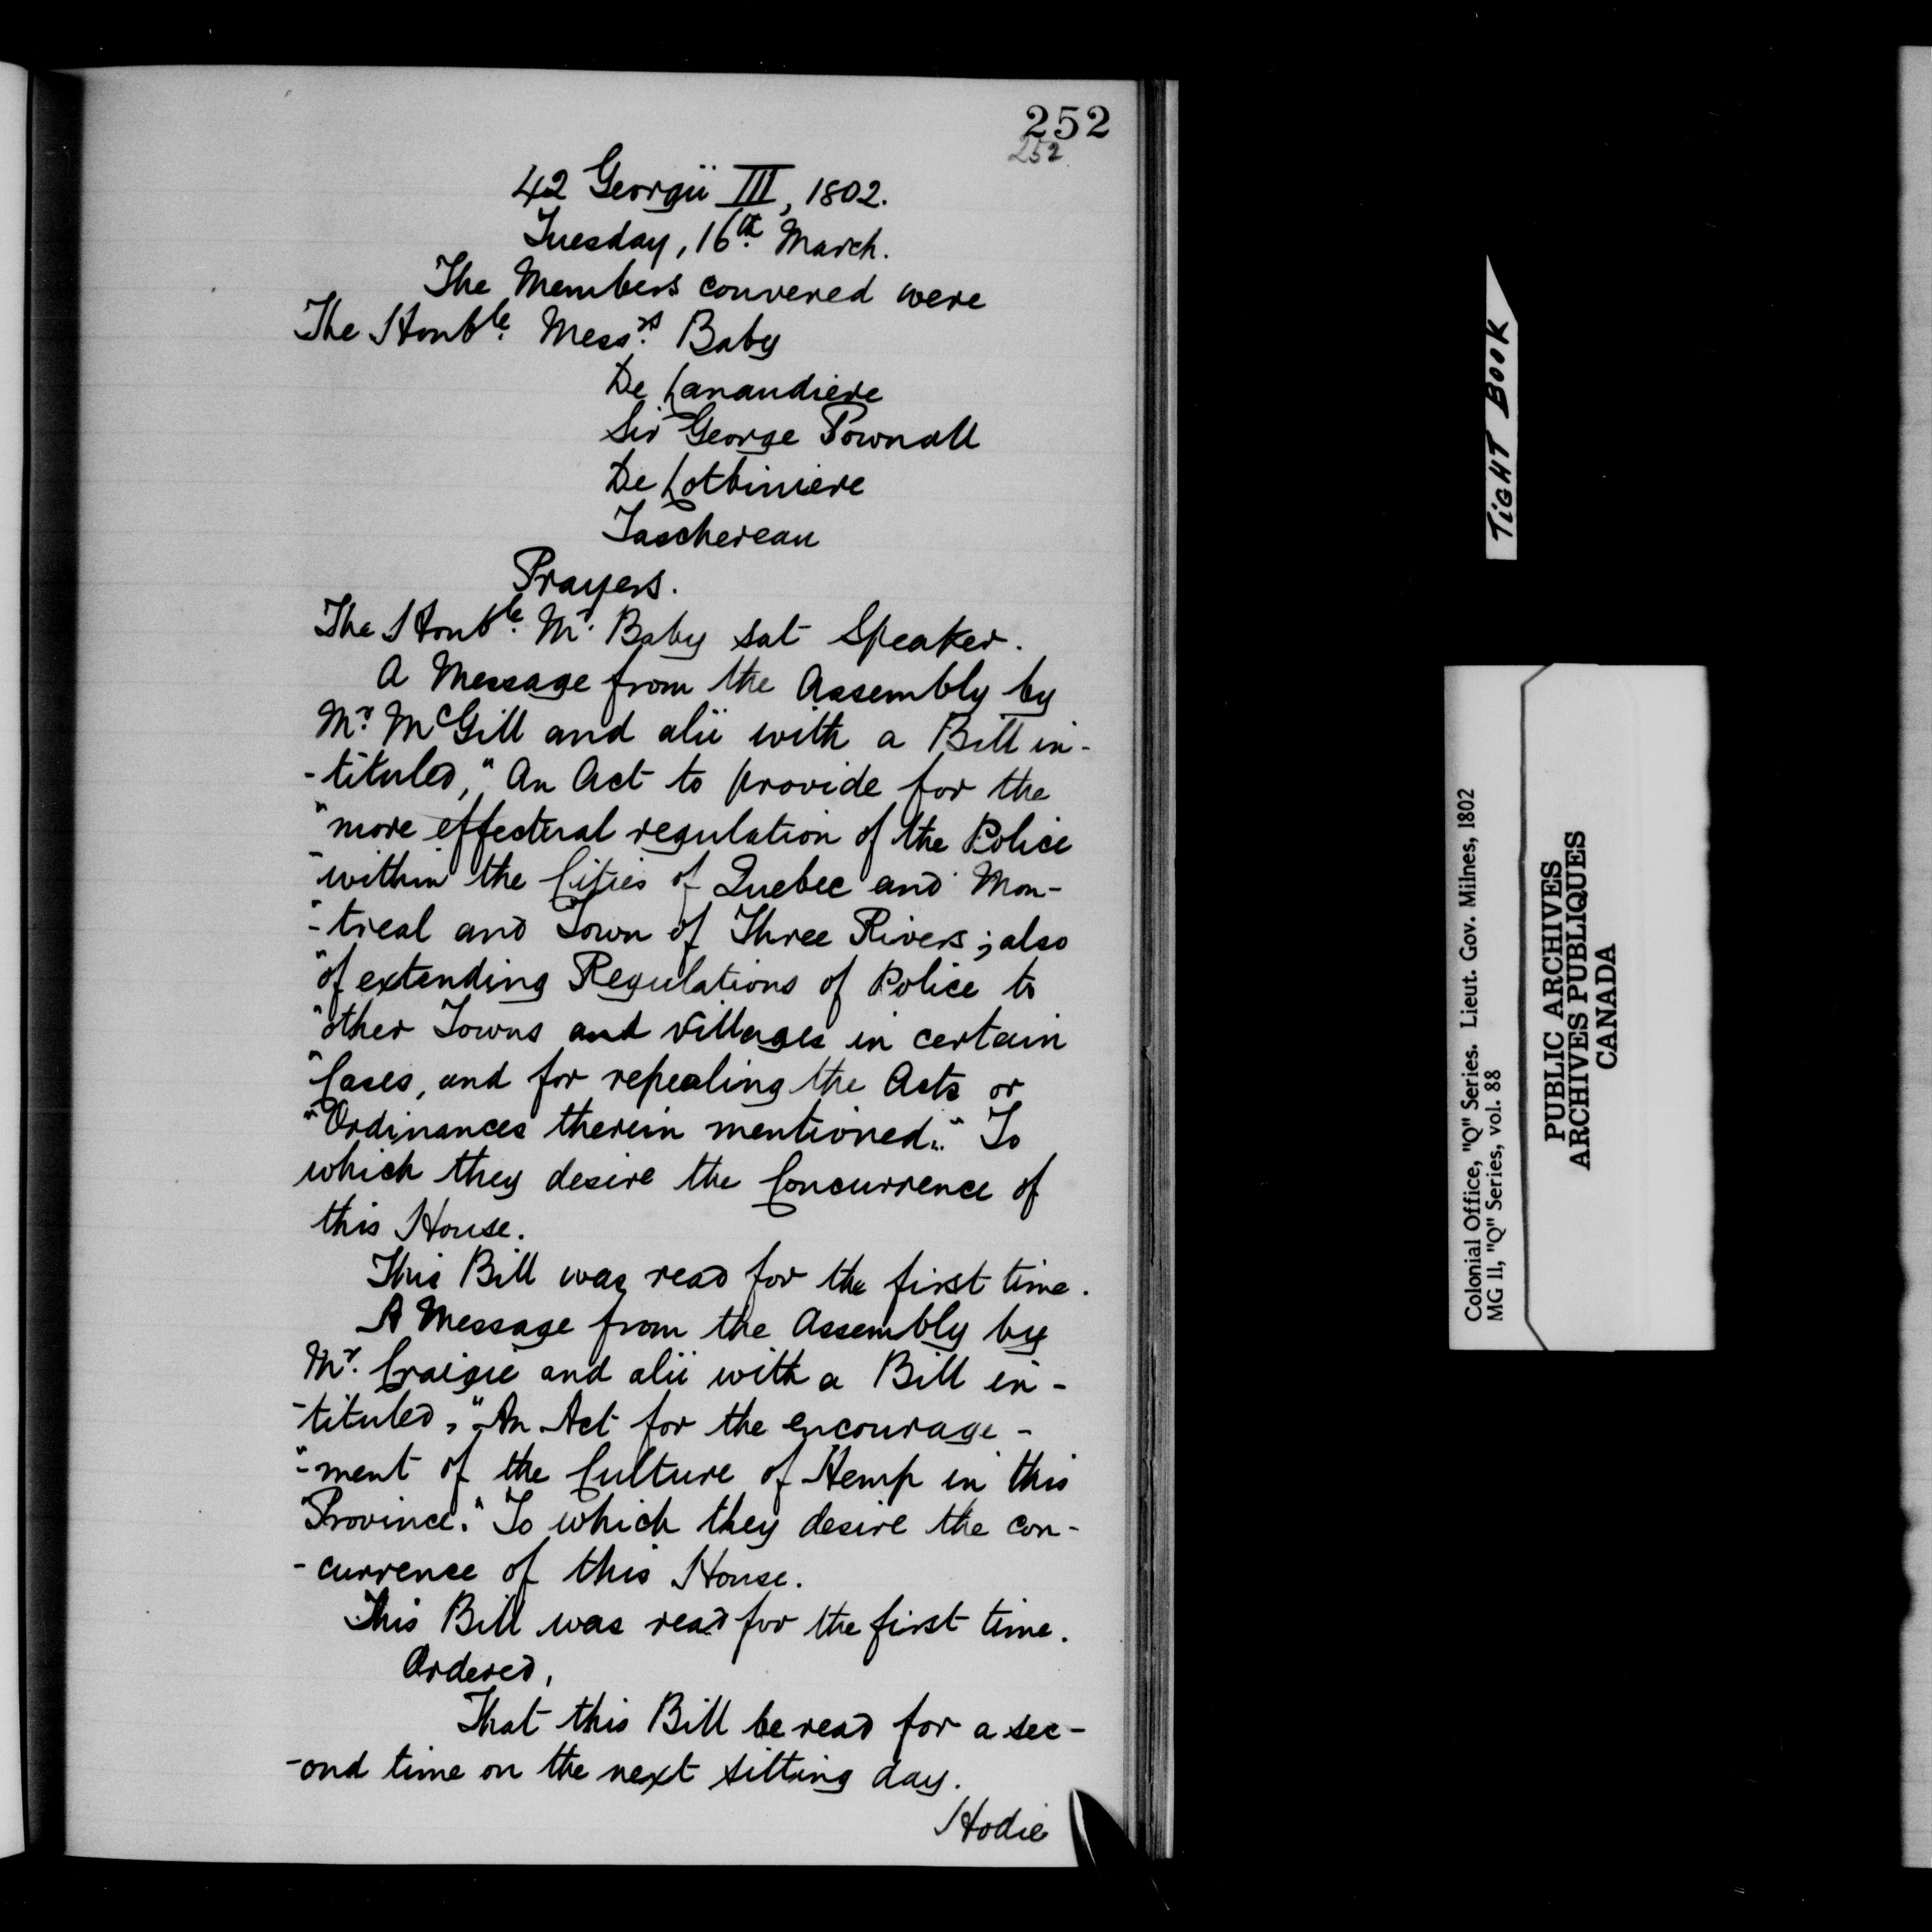 252
252
42 Georgii III, 1802.
Tuesday, 16th March.
The Members convened were
The Honble. Messrs. Baby
De Lanaudiere
Sir George Pownall
De Lotbiniere
Taschereau
Prayers.
The Honble. Mr. Baby sat Speaker.
A Message from the Assembly by
Mr. McGill and alii with a Bill in-
-tituled, "An Act to provide for the
"more effectual regulation of the Police
"within the Cities of Quebec and Mon-
"-treal and Town of Three Rivers; also
"of extending Regulations of Police to
"other Towns and Villages in certain
"Cases, and for repealing the Acts or
"Ordinances therein mentioned." To
which they desire the Concurrence of
this House.
This Bill was read for the first time.
A Message from the Assembly by
Mr. Craigie and alii with a Bill in-
-tituled, "An Act for the encourage-
"-ment of the Culture of Hemp in this
"Province." To which they desire the con-
-currence of this House.
This Bill was read for the first time.
Ordered,
That this Bill be read for a sec-
-ond time on the next sitting day.
Hodie
TIGHT BOOK
Colonial Office, "Q" Series. Lieut. Gov. Milnes, 1802
MG 11, "Q" Series, vol. 88
PUBLIC ARCHIVES
ARCHIVES PUBLIQUES
CANADA